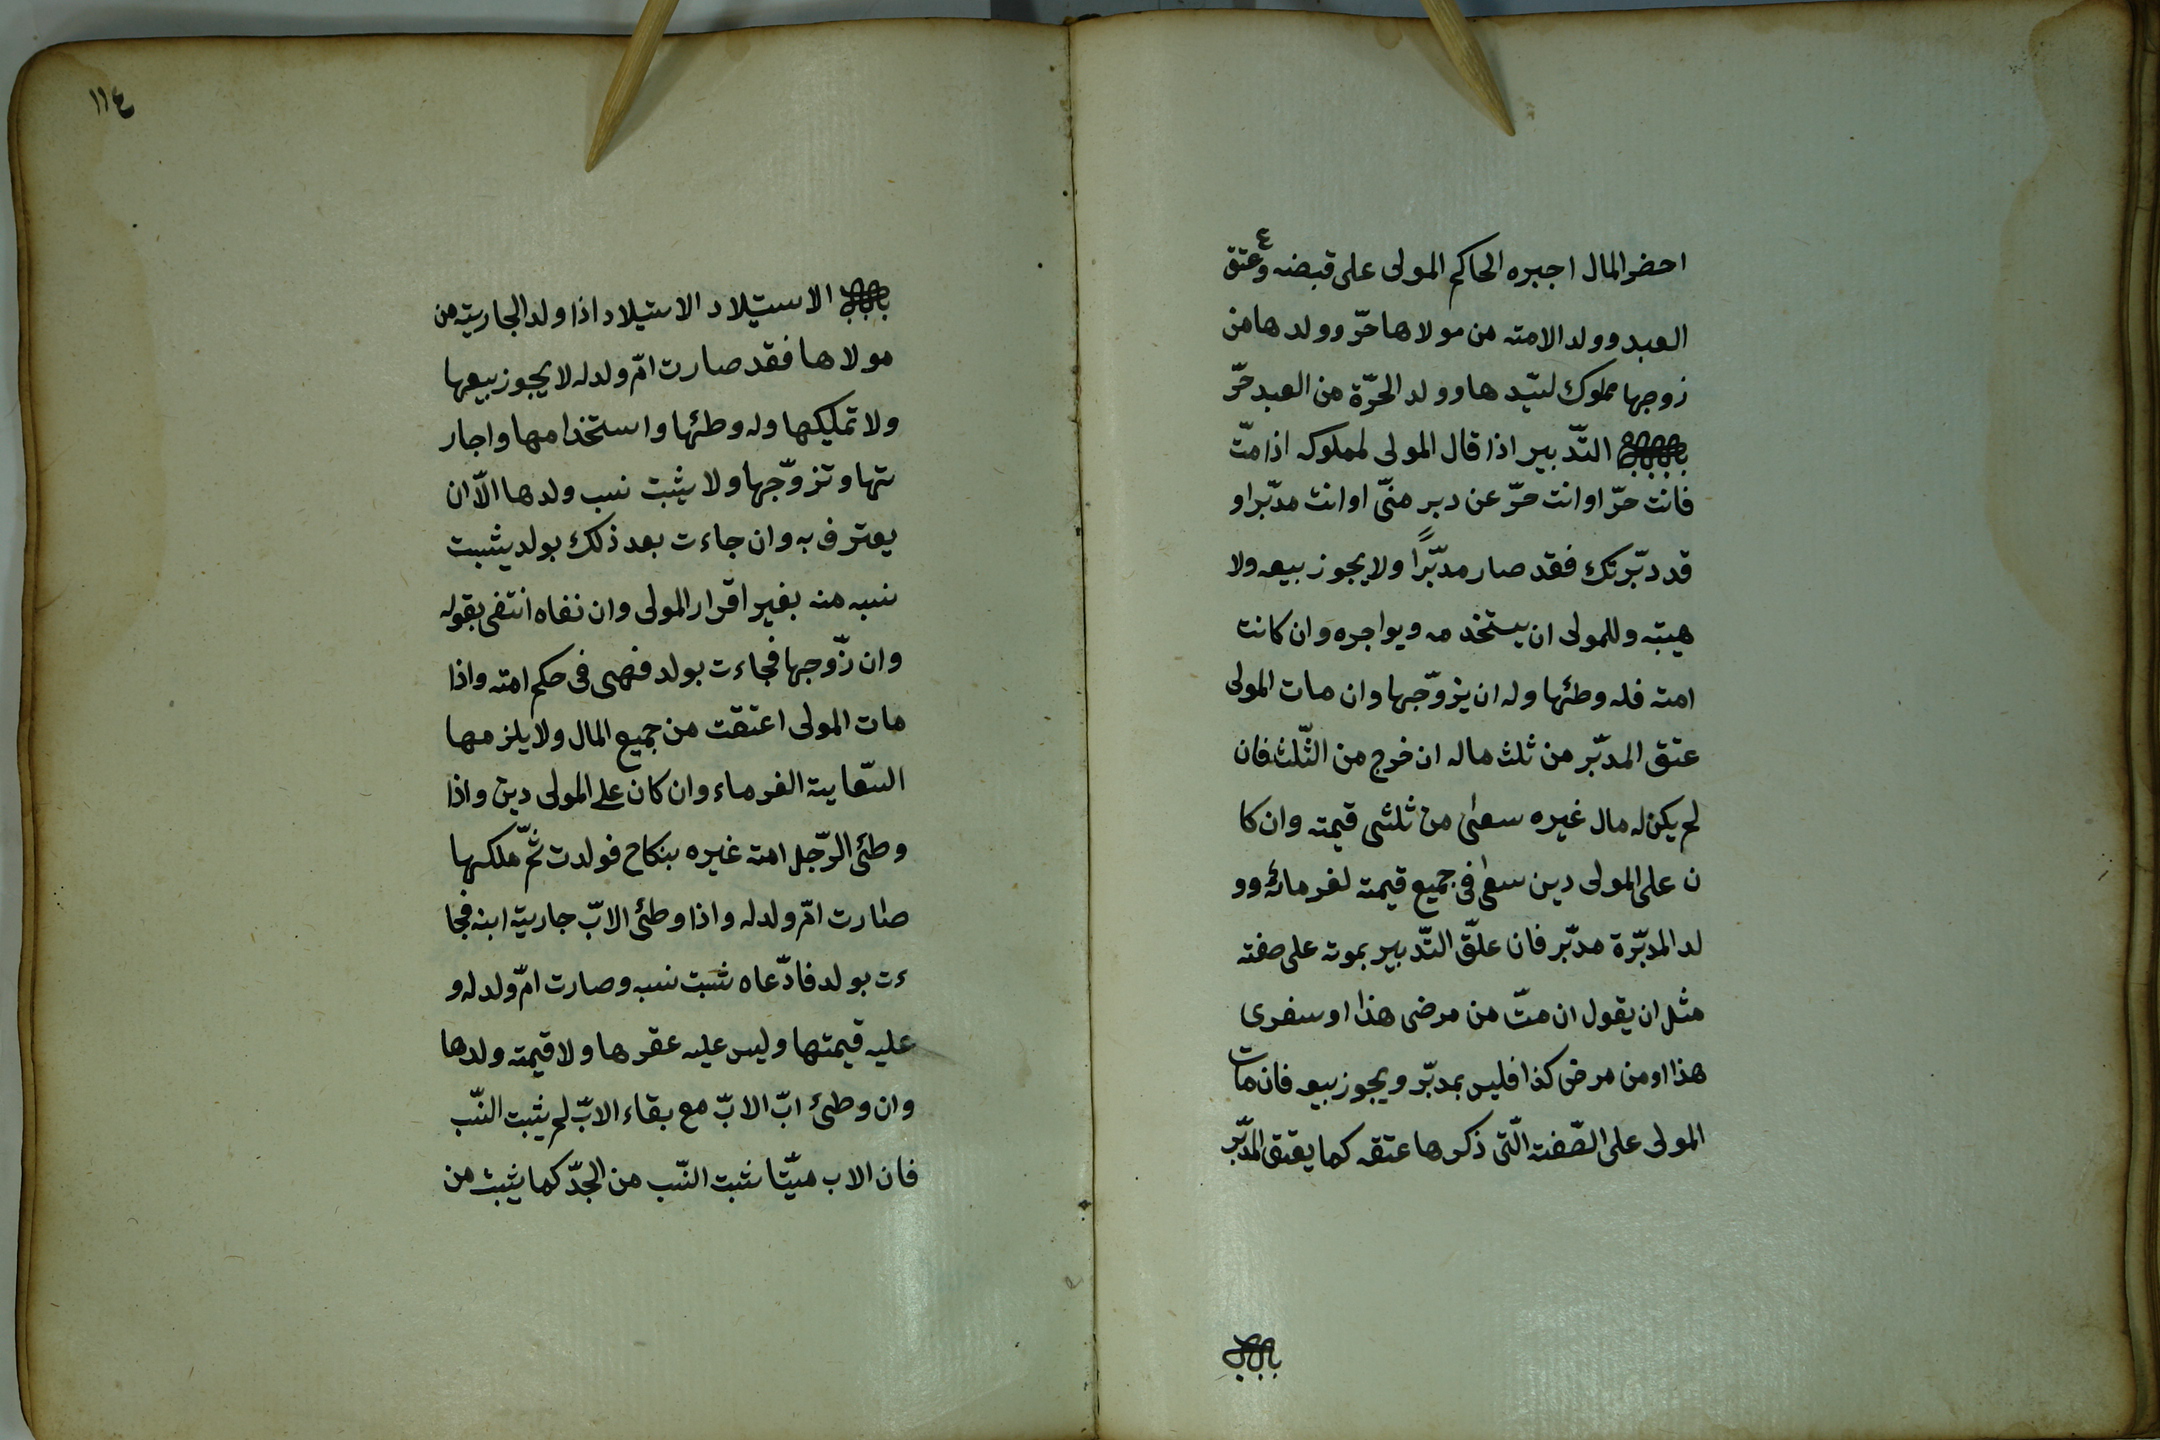 احضر المال اجبره الحاكم المولى على قبضه وعتق
العبد وولد الامته من مولاها حرّ وولدها من
زوجها مملوك لسيّدها وولد الحرّة من العبد حرّ
التّدبير اذا قال المولى لمملوكه اذا متّ
فانت حرّ اوانت حرّ عن دبر منّى اوانت مدبّر او
قد دبّرتك فقد صار مدبّرًا ولا يجوز بيعه ولا
هبته وللمولى ان يستخدمه ويواجره وان كانت
امته فله وطئها وله ان يزوّجها وان مات المولى
عتق المدبّر من ثلث ماله ان خرج من الثّلث فان
لم يكن له مال غيره سعى من ثلثى قيمته وان كا
ن على المولى دين سعى فى جميع قيمته لغرمائه وو
لد المدبّرة مدبّر فان علّق التّدبير بموته على صفته
مثل ان يقول ان متّ من مرضى هذا او سفرى
هذا او من مرض كذا فليس بمدبّر ويجوز بيعه فان مات
المولى على الصّفته الّتى ذكرها عتقه كما يعتق المدبّر
باب
١١٤
باب الاستيلاد الاستيلاد اذا ولد الجاريته من
مولاها فقد صارت امّ ولد له لا يجوز بيعها
ولا تمليكها وله وطئها واستخدامها واجار
تها وتزوّجها ولا يثبت نسب ولدها الاّ ان
يعترف به وان جاءت بعد ذلك بولد يثبت
نسبه منه بغير اقرار المولى وان نفاه انتفى بقوله
وان زوّجها فجاءت بولد فهى فى حكم امته واذا
مات المولى اعتقت من جميع المال ولا يلزمها
السّعايته الغرماء وان كان على المولى دين واذا
وطئ الرّجل امته غيره بنكاح فولدت ثمّ ملكها
صارت امّ ولد له واذا وطئ الابّ جاريته ابنه فجا
ءت بولد فادّعاه ثبت نسبه وصارت امّ ولد له و
عليه قيمتها وليس عليه عقرها ولا قيمته ولدها
وان وطئ ابّ الابّ مع بقاء الابّ لم يثبت النّسب
فان الاب ميّتا ثبت النّسب من الجدّ كما يثبت من